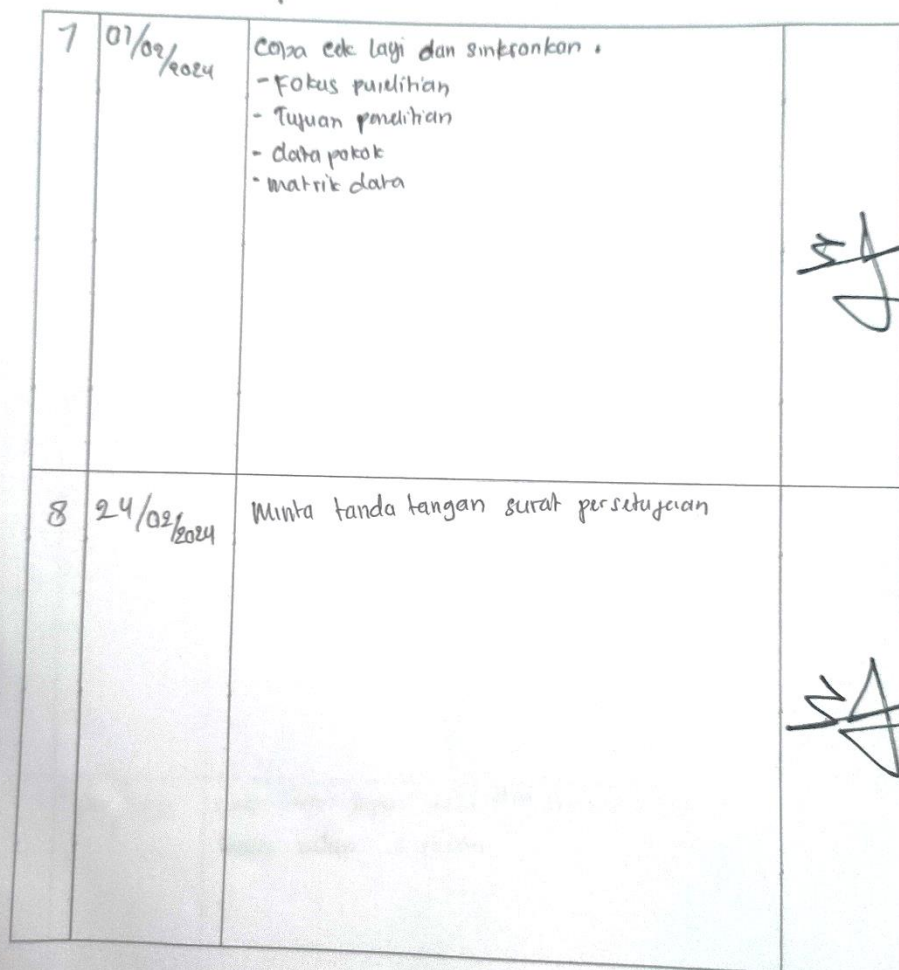 7 07/02/2024 Coba cek lagi dan sinkronkan.
- Fokus penelitian
- Tujuan penelitian
- data pokok
- matrik data
8 24/02/2024 Minta tanda tangan surat persetujuan